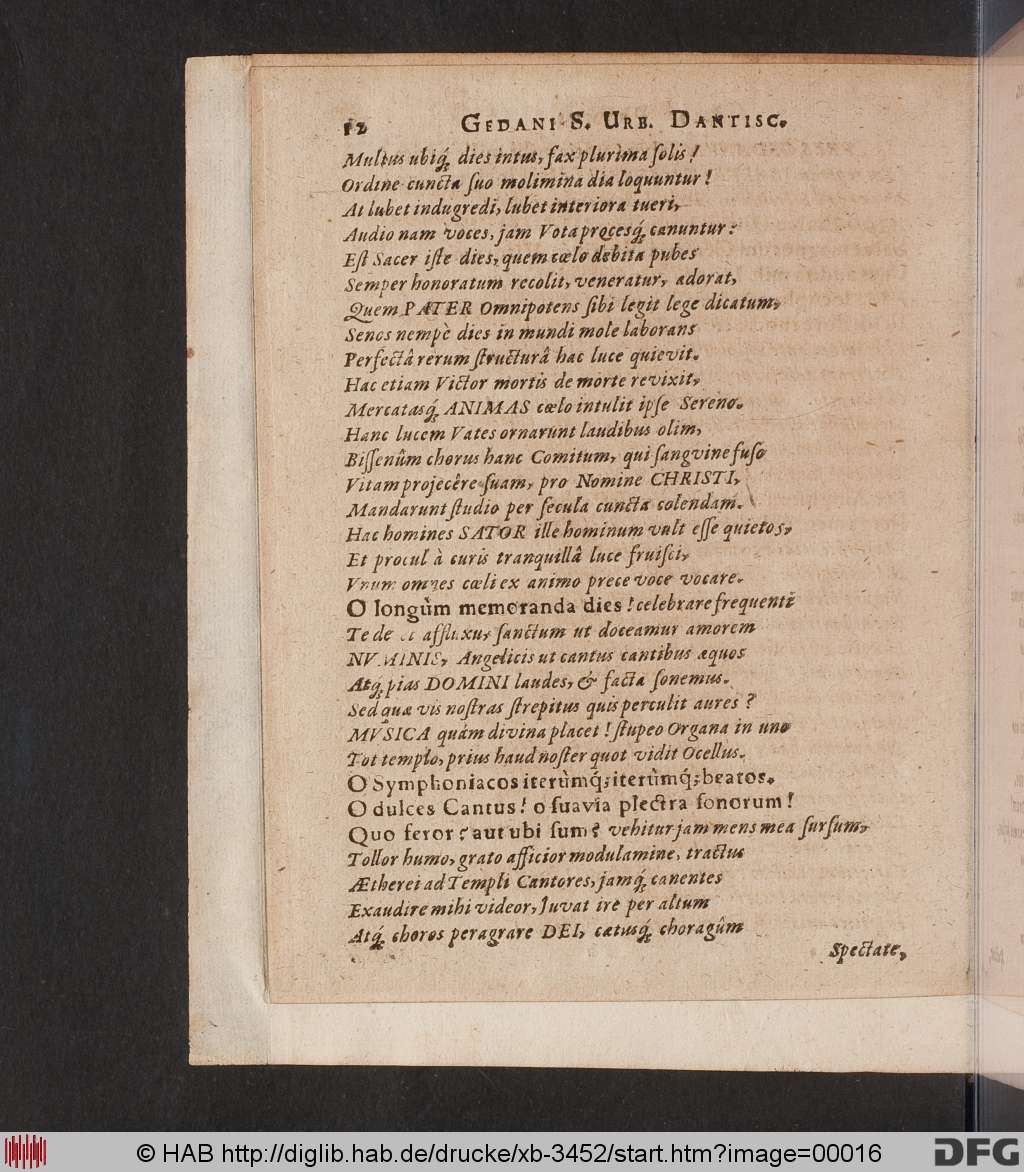 12 GEDANI S. URB. DANTISC.
Multus ubiq́; dies intus, fax plurima ſolis!
Ordine cuncta ſuo molimina dia loquuntur!
At lubet indugredi, lubet interiora tueri,
Audio nam voces, jam Vota procesq́; canuntur:
Eſt Sacer iſte dies, quem cœlo debita pubes
Semper honoratum recolit, veneratur, adorat,
Quem PATER Omnipotens ſibi legit lege dicatum,
Senos nempè dies in mundi mole laborans
Perfectâ rerum ſtructurâ hac luce quievit.
Hac etiam Victor mortis de morte revixit,
Mercatasq́; ANIMAS cœlo intulit ipſe Sereno.
Hanc lucem Vates ornarunt laudibus olim,
Biſſenûm chorus hanc Comitum, qui ſangvine fuſo
Vitam projecêre ſuam, pro Nomine CHRISTI,
Mandarunt ſtudio per ſecula cuncta colendam.
Hac homines SATOR ille hominum vult eſſe quietos,
Et procul à curis tranquillâ luce fruiſci,
Vnum omnes cœli ex animo prece voce vocare.
O longùm memoranda dies! celebrare frequentẽ
Te de affluxu, ſanctum ut doceamur amorem
NVMINIS, Angelicis ut cantus cantibus æquos
Atq́; pias DOMINI laudes, & facta ſonemus.
Sed quæ vis noſtras ſtrepitus quis perculit aures?
MVSICA quàm divina placet! ſtupeo Organa in uno
Tot templo, prius haud noſter quot vidit Ocellus.
O Symphoniacos iterùmq́; iterùmq́; beatos.
O dulces Cantus! o ſuavia plectra ſonorum!
Quo feror? aut ubi ſum? vehitur jam mens mea ſurſum,
Tollor humo, grato afficior modulamine, tractus
Ætherei ad Templi Cantores, jamq́; canentes
Exaudire mihi videor, Juvat ire per altum
Atq́; choros peragrare DEI, cætusq́; choragûm
Spectate,
© HAB http://diglib.hab.de/drucke/xb-3452/start.htm?image=00016
DFG